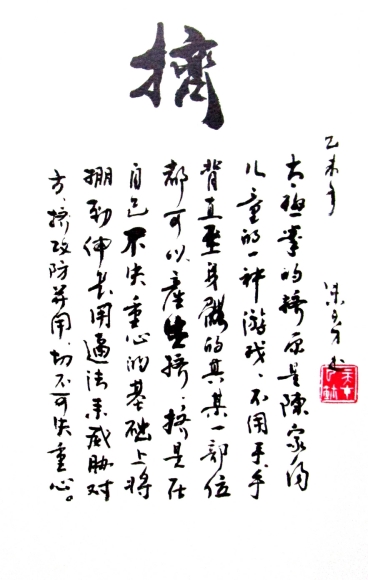 擠
乙未年 朱天才书
太極拳的擠原是陳家沟
儿童的一种游戏、不用手手
背直至身體的其某一部位
都可以產生擠、擠是在
自己不失重心的基础上将
掤劲伸长用逼法来威胁对
方、擠攻防并用切不可失重心。